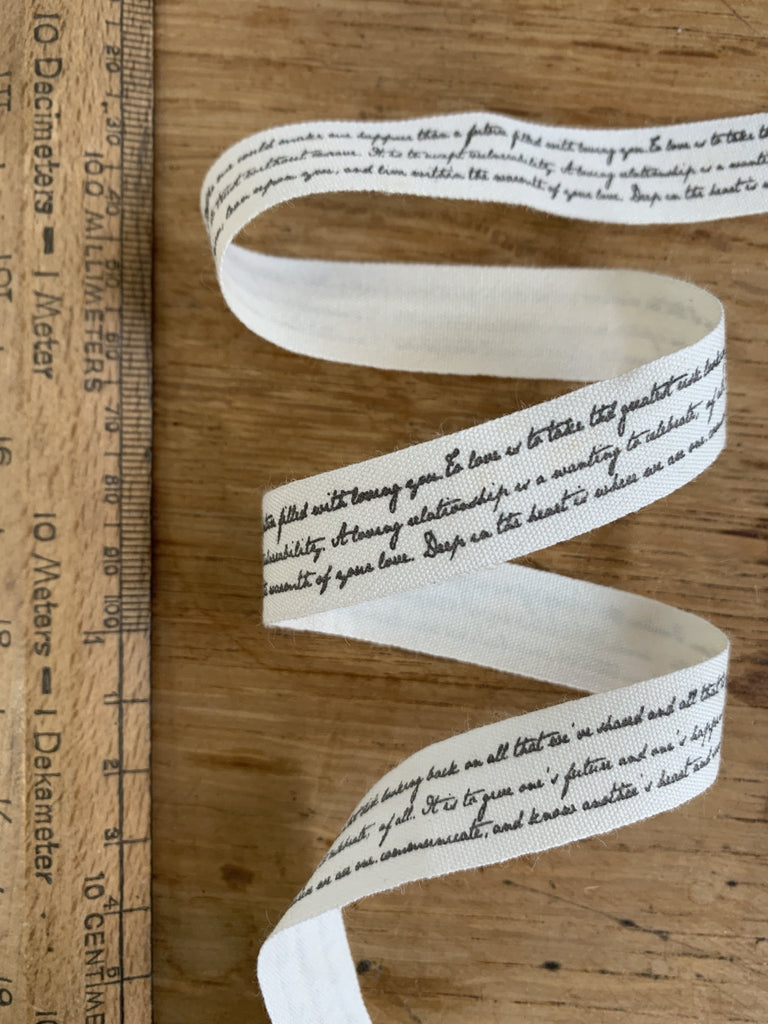 one could make me happier than a future filled with loving you. To love is to take t
trust without It is to accept vulnerability. A loving relationship is a wanti
lean upon you, and live within the warmth of your love. Deep in the heart is w
filled with loving you. To love is to take the greatest risk
vulnerability. A loving relationship is a wanting to celebrate, of a
warmth of your love. Deep in the heart is where we are one.
looking back on all that we've shared and all that
celebrate, of all. It is to give one's future and one's happi
we are one. communicate, and know another's heart and
10 Decimeters = 1 Meter
10 Meters = 1 Dekameter
100 MILLIMETERS
20 30 40 50 60 70 80 90 100
1 2 3 4 5
10 CENTIME